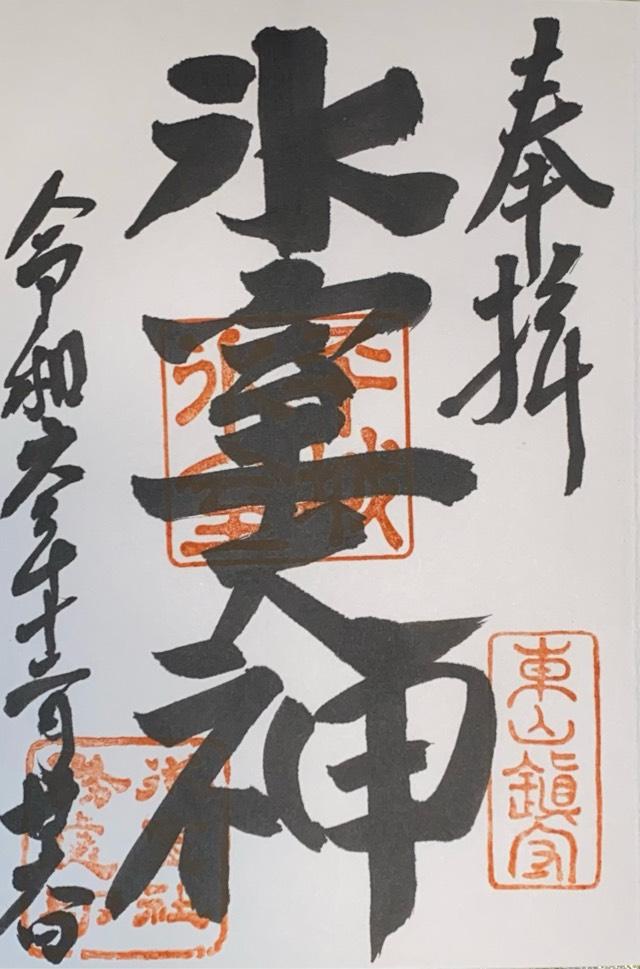 奉拝
東山鎮守
氷室大神
令和六年十二月廿日